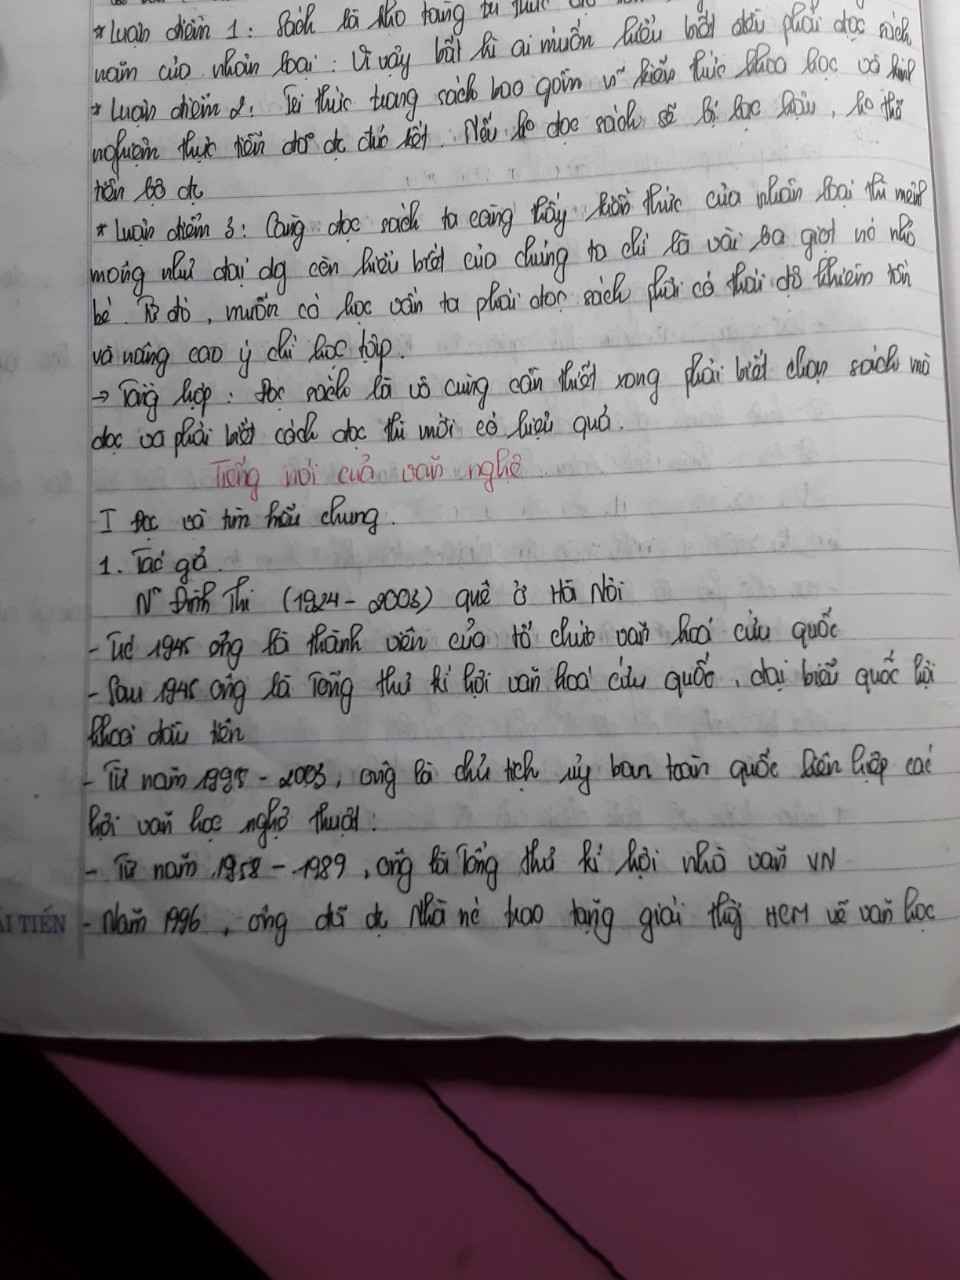 * Luận điểm 1: Sách là kho tàng tri thức
năm của nhân loại. Vì vậy bất kì ai muốn hiểu biết đều phải đọc sách
* Luận điểm 2: Tri thức trong sách bao gồm kiến thức khoa học và kinh
nghiệm thực tiễn đã đc đúc kết. Nếu ko đọc sách sẽ bị lạc hậu, ko thể
tiến bộ đc
* Luận điểm 3: Càng đọc sách ta càng thấy kiến thức của nhân loại thì mênh
mông như đại dg còn hiểu biết của chúng ta chỉ là vài ba giọt nó nhỏ
bé. Từ đó, muốn có học vấn ta phải đọc sách phải có thái độ khiêm tốn
và nâng cao ý chí học tập.
→ Tổng hợp: Đọc sách là vô cùng cần thiết xong phải biết chọn sách mà
đọc và phải biết cách đọc thì mới có hiệu quả.
Tiếng nói của văn nghệ
I Đọc và tìm hiểu chung.
1. Tác giả.
N~ Đình Thi (1924 - 2003) quê ở Hà Nội
- Trc 1945 ông là thành viên của tổ chức văn hoá cứu quốc
- Sau 1945 ông là Tổng thư kí hội văn hoá cứu quốc, đại biểu quốc hội
khoá đầu tiên
- Từ năm 1995 - 2003, ông là chủ tịch ủy ban toàn quốc liên hiệp các
hội văn học nghệ thuật.
- Từ năm 1958 - 1989, ông là Tổng thư kí hội nhà văn VN
ẢI TIẾN - Năm 1996, ông đã đc Nhà nc trao tặng giải thg HCM về văn học